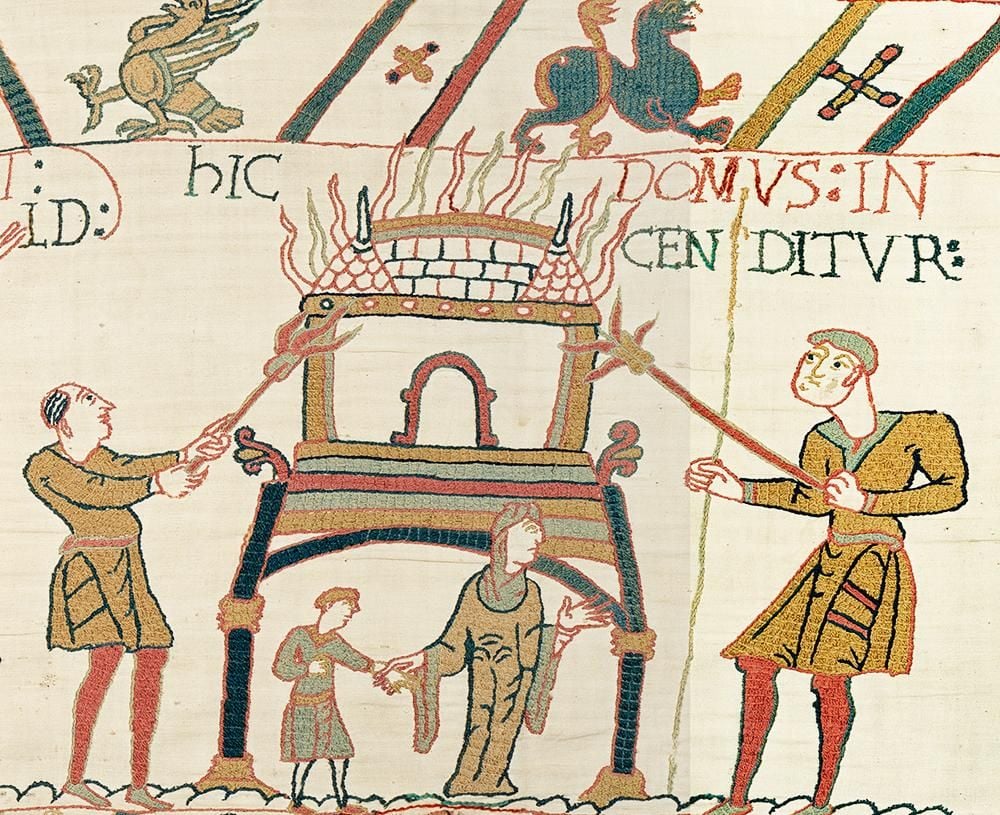 ID:
hIC DOMVS: IN
CENDITVR: